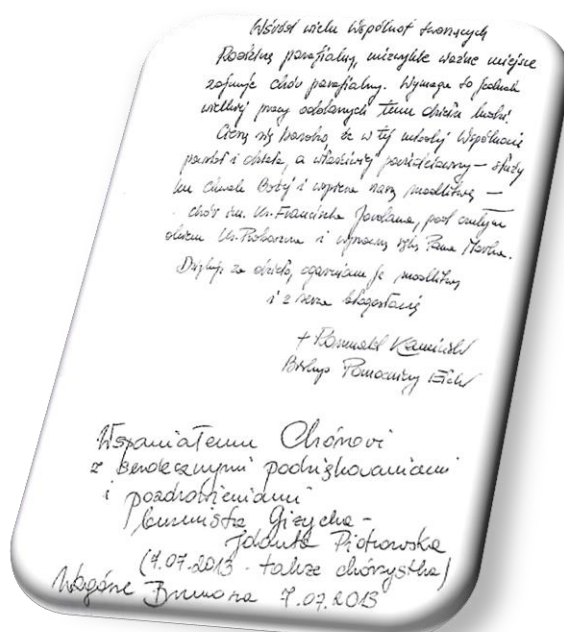 Wśród wielu Wspólnot tworzących
Rodzinę parafialną, niezwykle ważne miejsce
zajmuje chór parafialny. Wymaga to jednak
wielkiej pracy oddanych temu dziełu ludzi.
Cieszę się bardzo, że w tej młodej Wspólnocie
powstał i działa, a właściwiej powiedziawszy – służy
ku Chwale Bożej i wspiera naszą modlitwę –
chór im. Ks. Franciszka Jordana, pod czułym
okiem Ks. Proboszcza i Pana
Dziękuję za dzieło, ogarniam je modlitwą
i z serca błogosławię
+ Romuald Kamiński
Biskup Pomocniczy Ełcki
Wspaniałemu Chórowi
z serdecznymi podziękowaniami
i pozdrowieniami
burmistrz Giżycka –
Jolanta Piotrowska
(7.07.2013 - także chórzystka)
Wzgórze Brunona 7.07.2013